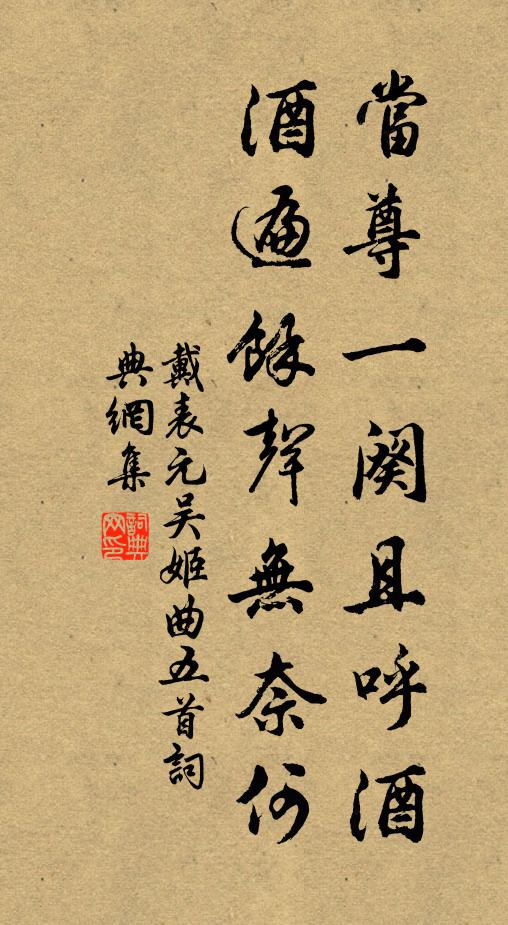 當尊一闋且呼酒
酒遍餘聲無奈何
戴表元吴姬曲五首詞
典網集
詞典網印